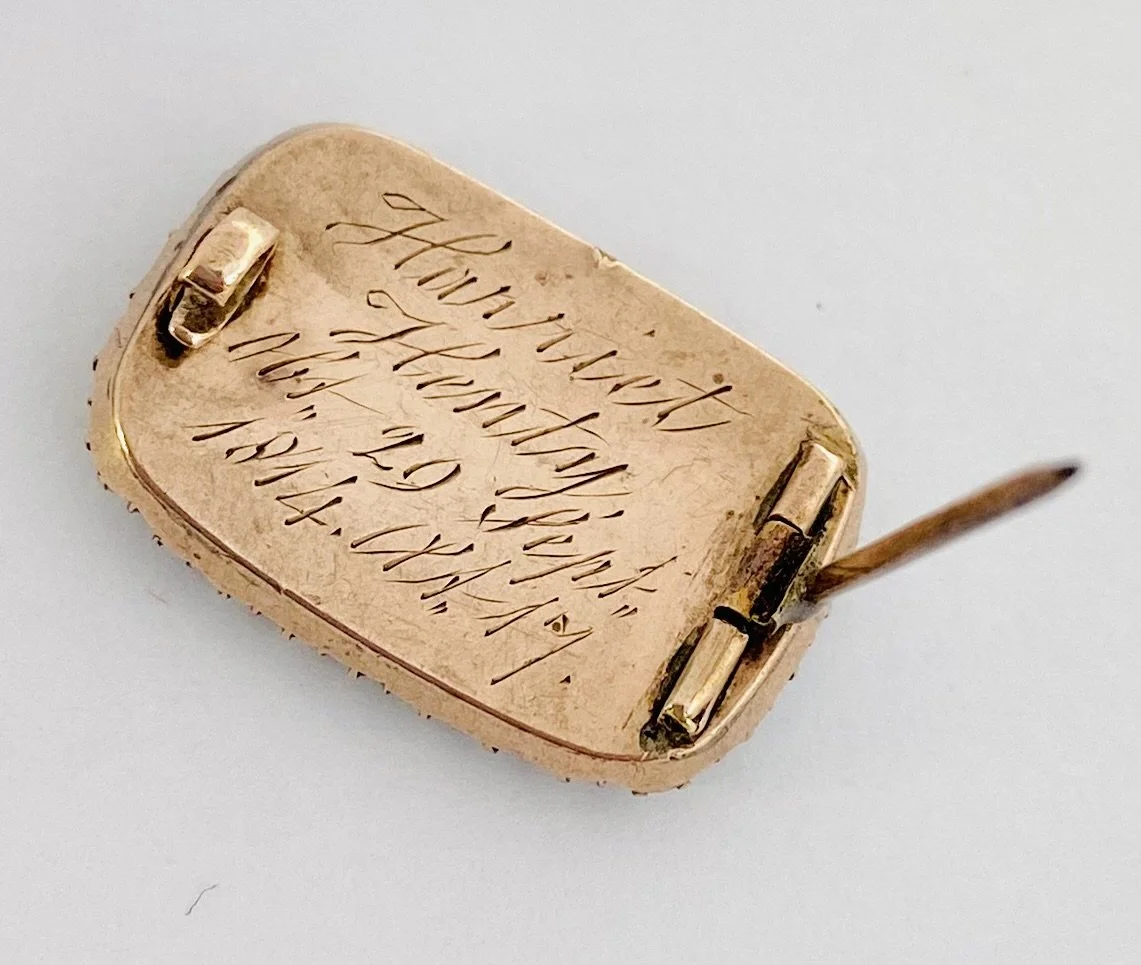 Harriet
Henty
obt 29 Sept.
1814. Æt. 17.